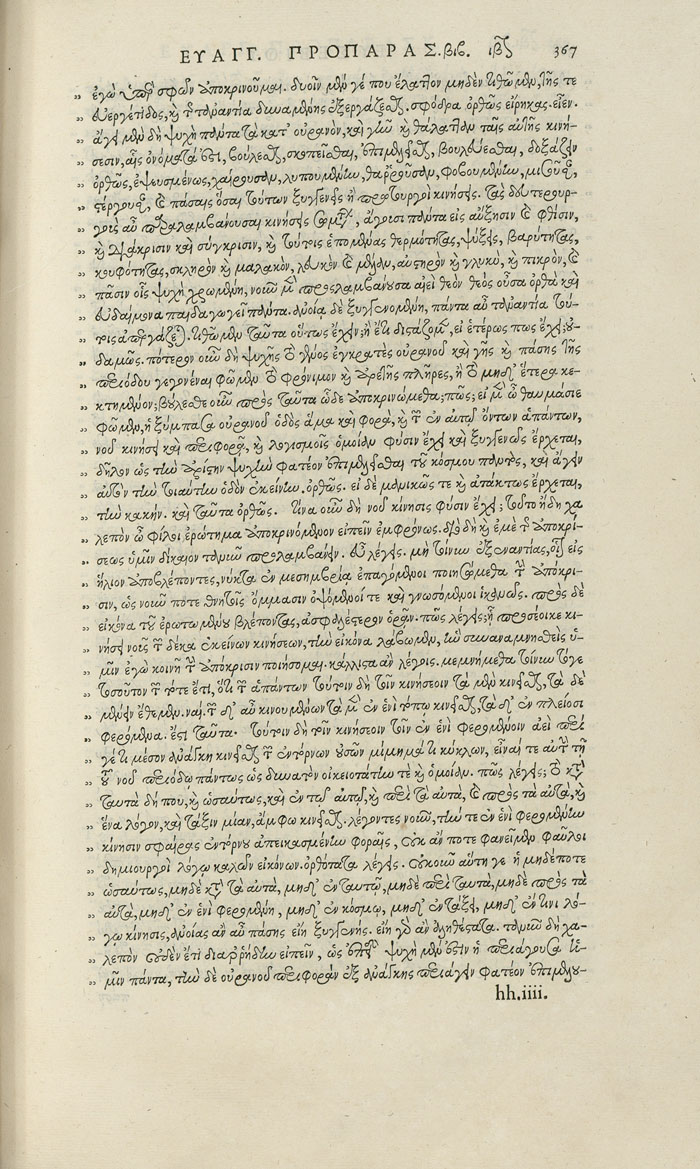 ΕΥΑΓΓ. ΠΡΟΠΑΡΑΣ. βιβ. ιβ 367
„ ἐγὼ ὑπὲρ σφῶν ἀποκρινοῦμαι. δυοῖν μὲν γέ που ἔλαττον μηδὲν τιθῶμεν, τῆς τε
„ εὐεργέτιδος, καὶ τῆς τἀναντία δυναμένης ἐξεργάζεσθαι. σφόδρα ὀρθῶς εἴρηκας. εἶεν.
„ ἄγει μὲν δὴ ψυχὴ πάντα τὰ κατ' οὐρανὸν, καὶ γῆν καὶ θάλατταν ταῖς αὑτῆς κινή-
„ σεσιν, αἷς ὀνόματά ἐστι, βούλεσθαι, σκοπεῖσθαι, ἐπιμελεῖσθαι, βουλεύεσθαι, δοξάζειν
„ ὀρθῶς, ἐψευσμένως, χαίρουσαν, λυπουμένην, θαρροῦσαν, φοβουμένην, μισοῦσαν,
„ στέργουσαν, καὶ πάσαις ὅσαι τούτων ξυγγενεῖς ἢ πρωτουργοὶ κινήσεις. τὰς δευτερουρ-
„ γοὺς αὖ παραλαμβάνουσαι κινήσεις σωμάτων, ἄγουσι πάντα εἰς αὔξησιν καὶ φθίσιν,
„ καὶ διάκρισιν καὶ σύγκρισιν, καὶ τούτοις ἑπομένας θερμότητας, ψύξεις, βαρύτητας,
„ κουφότητας, σκληρὸν καὶ μαλακὸν, λευκὸν καὶ μέλαν, αὐστηρὸν καὶ γλυκὺ, καὶ πικρὸν, καὶ
„ πᾶσιν οἷς ψυχὴ χρωμένη, νοῦν μὲν προσλαμβάνουσα ἀεὶ θεὸν θεὸς οὖσα ὀρθὰ καὶ
„ εὐδαίμονα παιδαγωγεῖ πάντα. ἀνοίᾳ δὲ ξυγγενομένη, πάντα αὖ τἀναντία τού-
„ τοις ἀπεργάζεται. τιθῶμεν ταῦτα οὕτως ἔχειν; ἢ ἔτι διστάζομεν, εἰ ἑτέρως πως ἔχει; οὐ-
„ δαμῶς. πότερον οὖν δὴ ψυχῆς τὸ γένος ἐγκρατὲς οὐρανοῦ καὶ γῆς καὶ πάσης τῆς
„ περιόδου γεγονέναι φῶμεν τὸ φρόνιμον καὶ ἀρετῆς πλῆρες, ἢ τὸ μηδέτερα κε-
„ κτημένον; βούλεσθε οὖν πρὸς ταῦτα ὧδε ἀποκρινώμεθα; πῶς; εἰ μὲν ὦ θαυμάσιε
„ φῶμεν, ἡ ξύμπασα οὐρανοῦ ὁδὸς ἅμα καὶ φορὰ, καὶ τῶν ἐν αὐτῷ ὄντων ἁπάντων,
„ νοῦ κινήσει καὶ περιφορᾷ, καὶ λογισμοῖς ὁμοίαν φύσιν ἔχει καὶ ξυγγενῶς ἔρχεται,
„ δῆλον ὡς τὴν ἀρίστην ψυχὴν φατέον ἐπιμελεῖσθαι τοῦ κόσμου παντὸς, καὶ ἄγειν
„ αὐτὸν τὴν τοιαύτην ὁδὸν ἐκείνην. ὀρθῶς. εἰ δὲ μανικῶς τε καὶ ἀτάκτως ἔρχεται,
„ τὴν κακήν. καὶ ταῦτα ὀρθῶς. τίνα οὖν δὴ νοῦ κίνησις φύσιν ἔχει; τοῦτο ἤδη χα
„ λεπὸν ὦ φίλοι ἐρώτημα ἀποκρινόμενον εἰπεῖν ἐμφρόνως. διὸ δὴ καὶ ἐμὲ τῆς ἀποκρί-
„ σεως ὑμῖν δίκαιον τανῦν προλαμβάνειν. εὖ λέγεις. μὴ τοίνυν ἐξ ἐναντίας, οἷον εἰς
„ ἥλιον ἀποβλέποντες, νύκτα ἐν μεσημβρίᾳ ἐπαγόμενοι ποιησώμεθα τὴν ἀπόκρι-
„ σιν, ὡς νοῦν ποτε θνητοῖς ὄμμασιν ὀψόμενοί τε καὶ γνωσόμενοι ἱκανῶς. πρὸς δὲ
„ εἰκόνα τοῦ ἐρωτωμένου βλέποντας, ἀσφαλέστερον ὁρᾶν. πῶς λέγεις; ᾗ προσέοικε κι-
„ νήσει νοῦς τῶν δέκα ἐκείνων κινήσεων, τὴν εἰκόνα λάβωμεν, ἣν συναναμνησθεὶς ὑ-
„ μῖν ἐγὼ κοινῇ τὴν ἀπόκρισιν ποιήσομαι. κάλλιστα ἂν λέγοις. μεμνήμεθα τοίνυν τόγε
„ τοσοῦτον τῶν τότε ἔτι, ὅτι τῶν ἁπάντων τούτοιν δὴ τοῖν κινήσεοιν τὰ μὲν κινεῖσθαι, τὰ δὲ
„ μένειν ἔθεμεν. ναί. τῶν δ' αὖ κινουμένων τὰ μὲν ἐν ἑνὶ τόπῳ κινεῖσθαι, τὰ δ' ἐν πλείοσι
„ φερόμενα. ἔστι ταῦτα. τούτοιν δὴ τοῖν κινήσεοιν τοῖν ἐν ἑνὶ φερομένοιν ἀεὶ περὶ
„ γέ τι μέσον ἀνάγκη κινεῖσθαι τῶν ἐντόρνων οὐσῶν μίμημά τι κύκλων, εἶναί τε αὐτὴν τῇ
„ τοῦ νοῦ περιόδῳ πάντως ὡς δυνατὸν οἰκειοτάτην τε καὶ ὁμοίαν. πῶς λέγεις; τὸ κατὰ
„ ταυτὰ δή που, καὶ ὡσαύτως, καὶ ἐν τῷ αὐτῷ, καὶ περὶ τὰ αὐτὰ, καὶ πρὸς τὰ αὐτὰ, καὶ
„ ἕνα λόγον, καὶ τάξιν μίαν, ἄμφω κινεῖσθαι. λέγοντες νοῦν, τήν τε ἐν ἑνὶ φερομένην
„ κίνησιν σφαίρας ἐντόρνου ἀπεικασμένην φοραῖς, οὐκ ἄν ποτε φανεῖμεν φαῦλοι
„ δημιουργοὶ λόγῳ καλῶν εἰκόνων. ὀρθότατα λέγεις. οὐκοῦν αὕτη γε ἡ μηδέποτε
„ ὡσαύτως, μηδὲ κατὰ τὰ αὐτὰ, μηδ' ἐν ταὐτῷ, μηδὲ περὶ ταὐτὰ, μηδὲ πρὸς τὰ
„ αὐτὰ, μηδ' ἐν ἑνὶ φερομένη, μηδ' ἐν κόσμῳ, μηδ' ἐν τάξει, μηδ' ἔν τινι λό-
„ γῳ κίνησις, ἀνοίας ἂν αὖ πάσης εἴη ξυγγενής. εἴη γὰρ ἂν ἀληθέστατα. τανῦν δὴ χα-
„ λεπὸν οὐδὲν ἔτι διαρρήδην εἰπεῖν, ὡς ἐπειδὴ ψυχὴ μέν ἐστιν ἡ περιάγουσα ἡ-
„ μῖν πάντα, τὴν δὲ οὐρανοῦ περιφορὰν ἐξ ἀνάγκης περιάγειν φατέον ἐπιμελου-
hh.iiii.